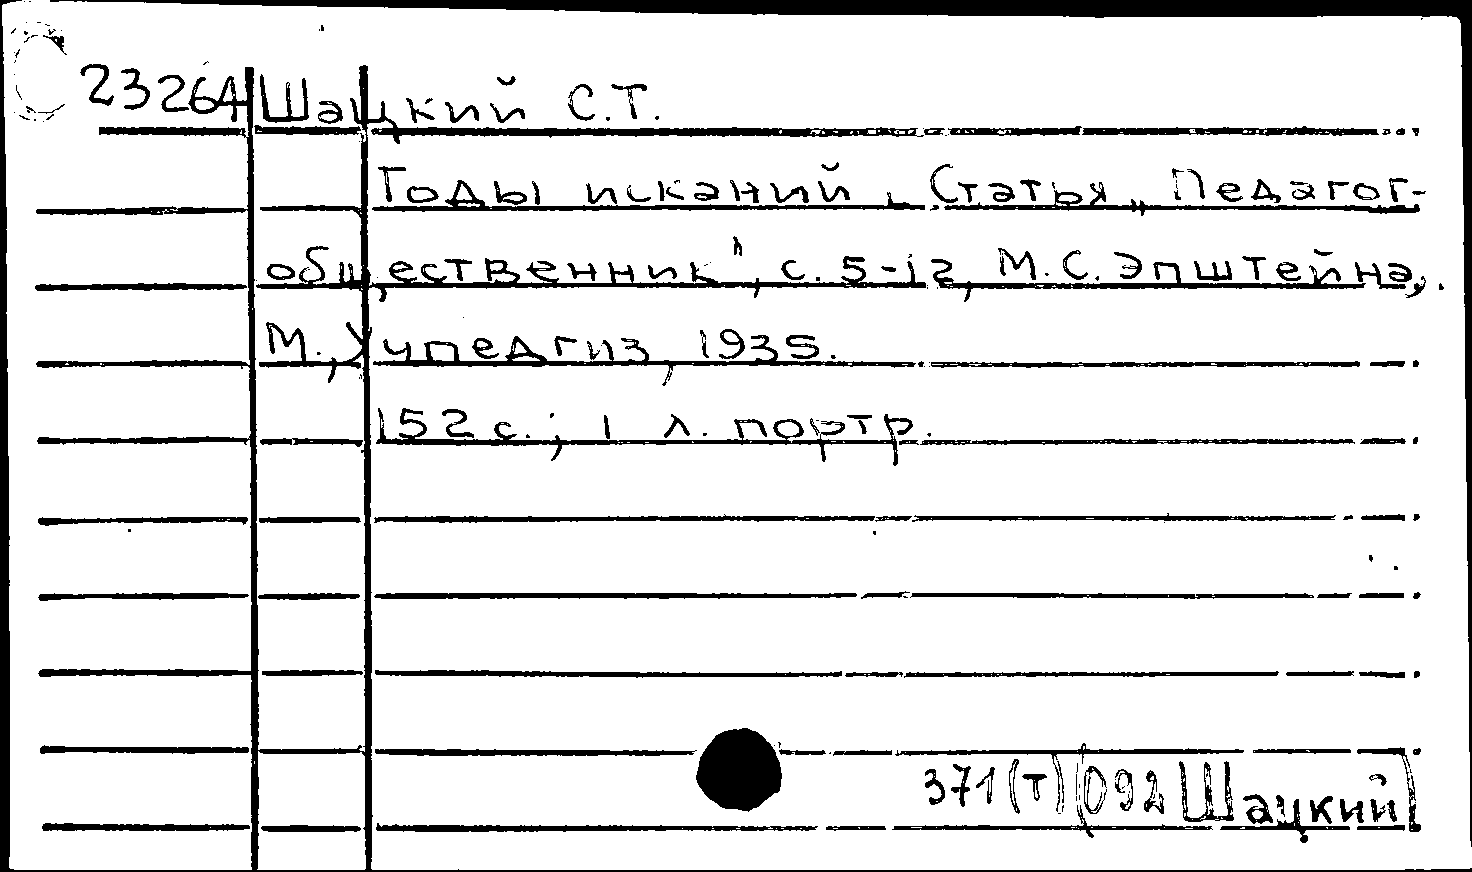 23264 Шацкий С.Т.
Годы исканий. Статья „Педагог-
общественник", с. 5-12, М.С. Эпштейна,.
М., Учпедгиз, 1935.
152 с.; 1 л. портр.
371(Т)(092 Шацкий)